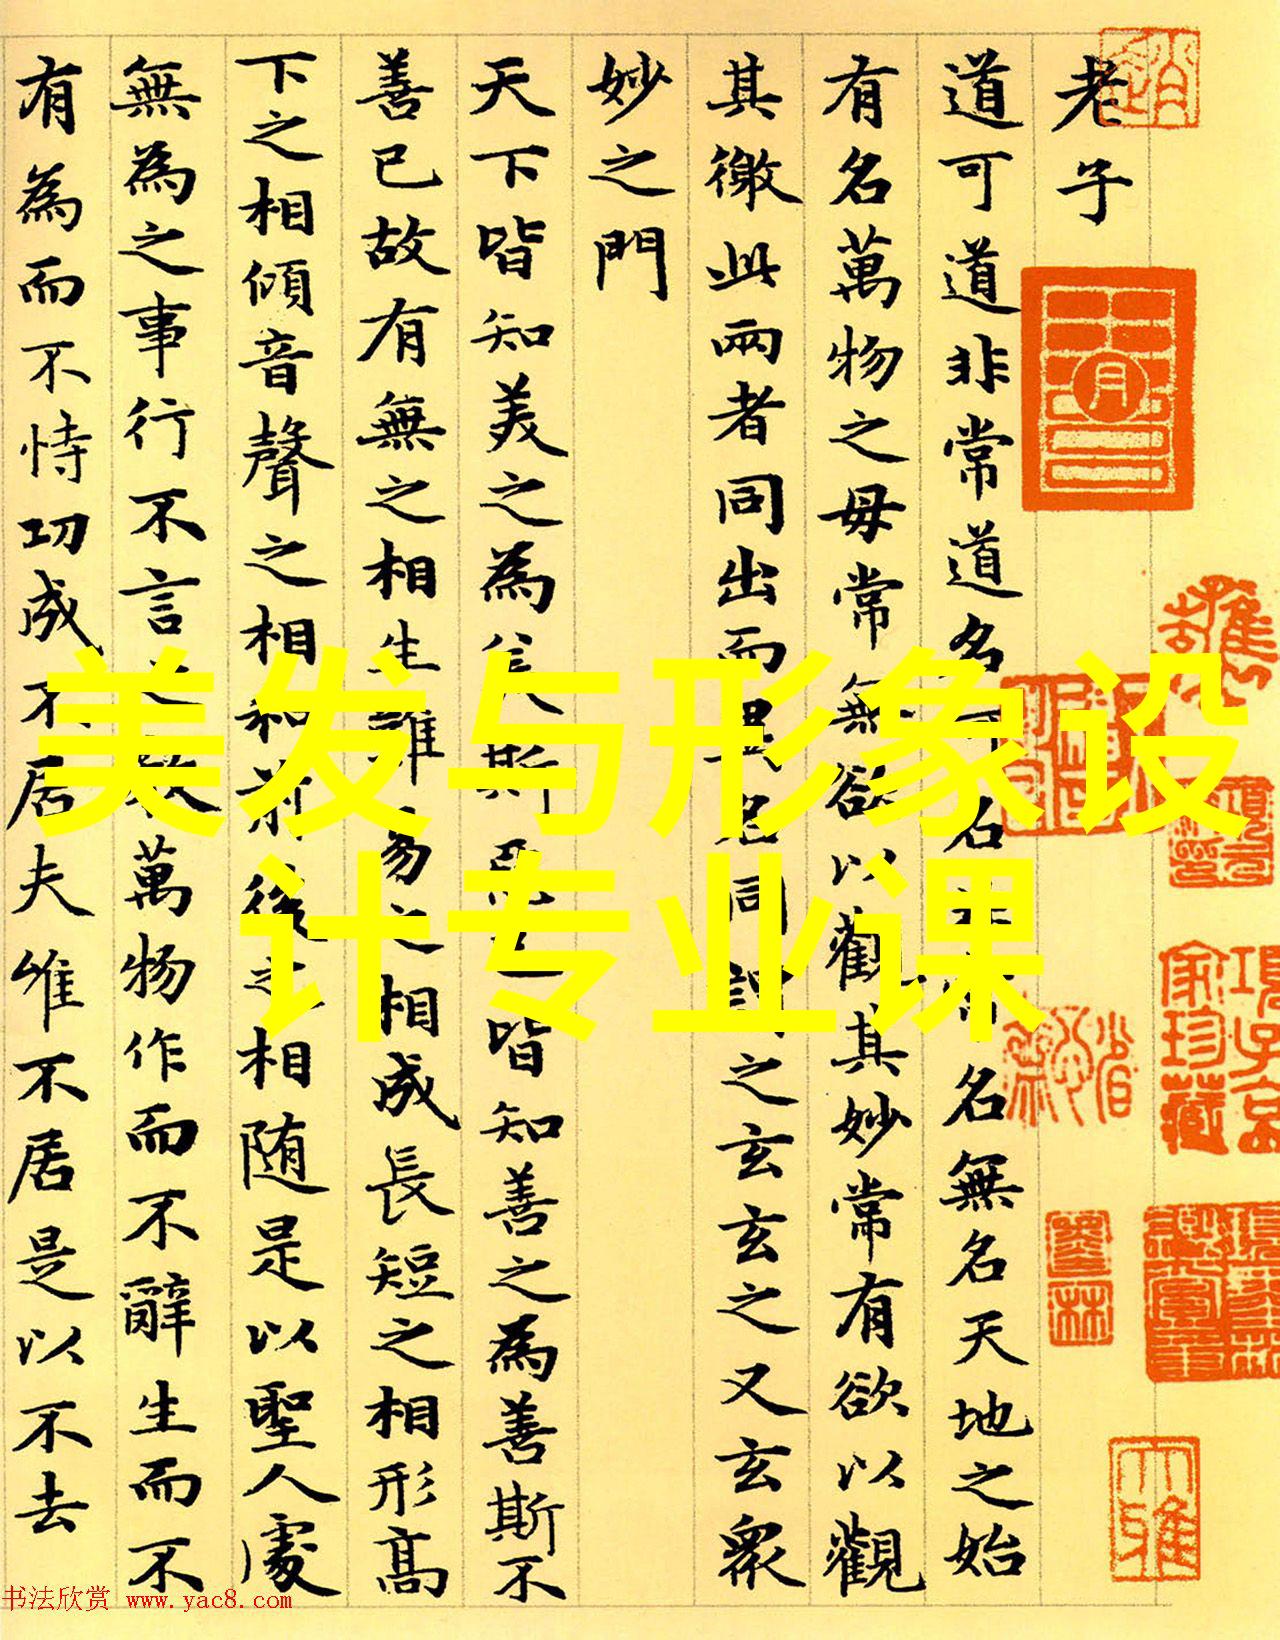 老子
道可道非常道名可名非常名無名天地之始
有名萬物之母常無欲以觀其妙常有欲以觀
其徼此兩者同出而異名同謂之玄玄之又玄衆
妙之門
天下皆知美之為美斯惡已皆知善之為善斯不
善已故有無之相生難易之相成長短之相形髙
下之相傾音聲之相和前後之相随是以聖人處
無為之事行不言之教萬物作而不辭生而不
有為而不恃功成不居夫唯不居是以不去
美发与形象设
计专业课
项子京
家珍藏
大雅
书法欣赏 www.yac8.com